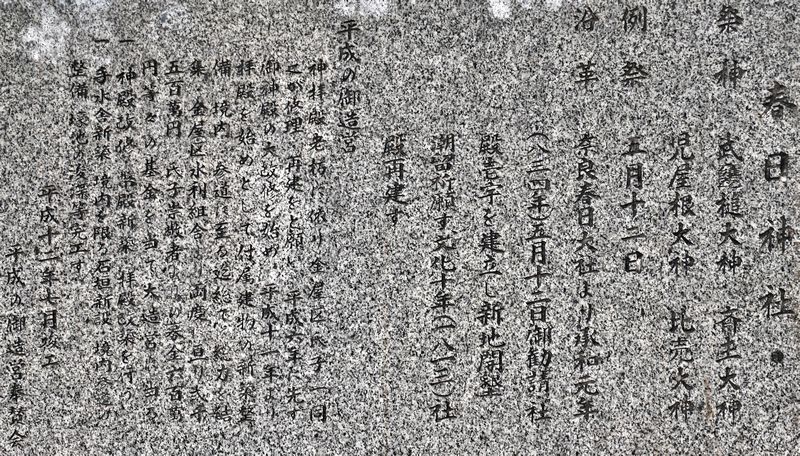 春日神社
祭神 武甕槌大神 斎主大神
児屋根大神 比売大神
例祭 五月十二日
沿革 奈良春日大社より承和元年
(八三四年)五月十二日御勧請社
殿壹宇を建立し新地開墾
潮留祈願す文化十年(一八一三)社
殿再建す
平成の御造営
神拝殿老朽に依り金屋区氏子一同
之が修理再建を念願し平成六年に先ず
御神殿の大改修を始め平成十一年より
拝殿を始めとして付属建物の新築整
備境内参道に至る迄総て総力を結
集金屋区水利組合より両度に亘り弐千
五百萬円氏子崇敬者よりの募金六百萬
円等々の基金を当て大造営に当る
一 神殿改修幣殿新築拝殿改築を行う
一 手水舎新築境内を限る石垣新設境内参道の
整備境地の清浄等完工す
平成十二年七月竣工
平成の御造営奉賛会